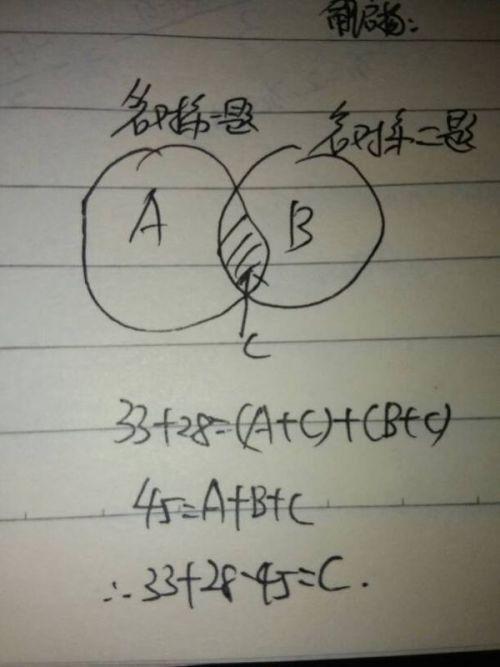 答对第一题
答对第二题
A
B
C
33+28=(A+C)+(B+C)
45=A+B+C
∴33+28-45=C.